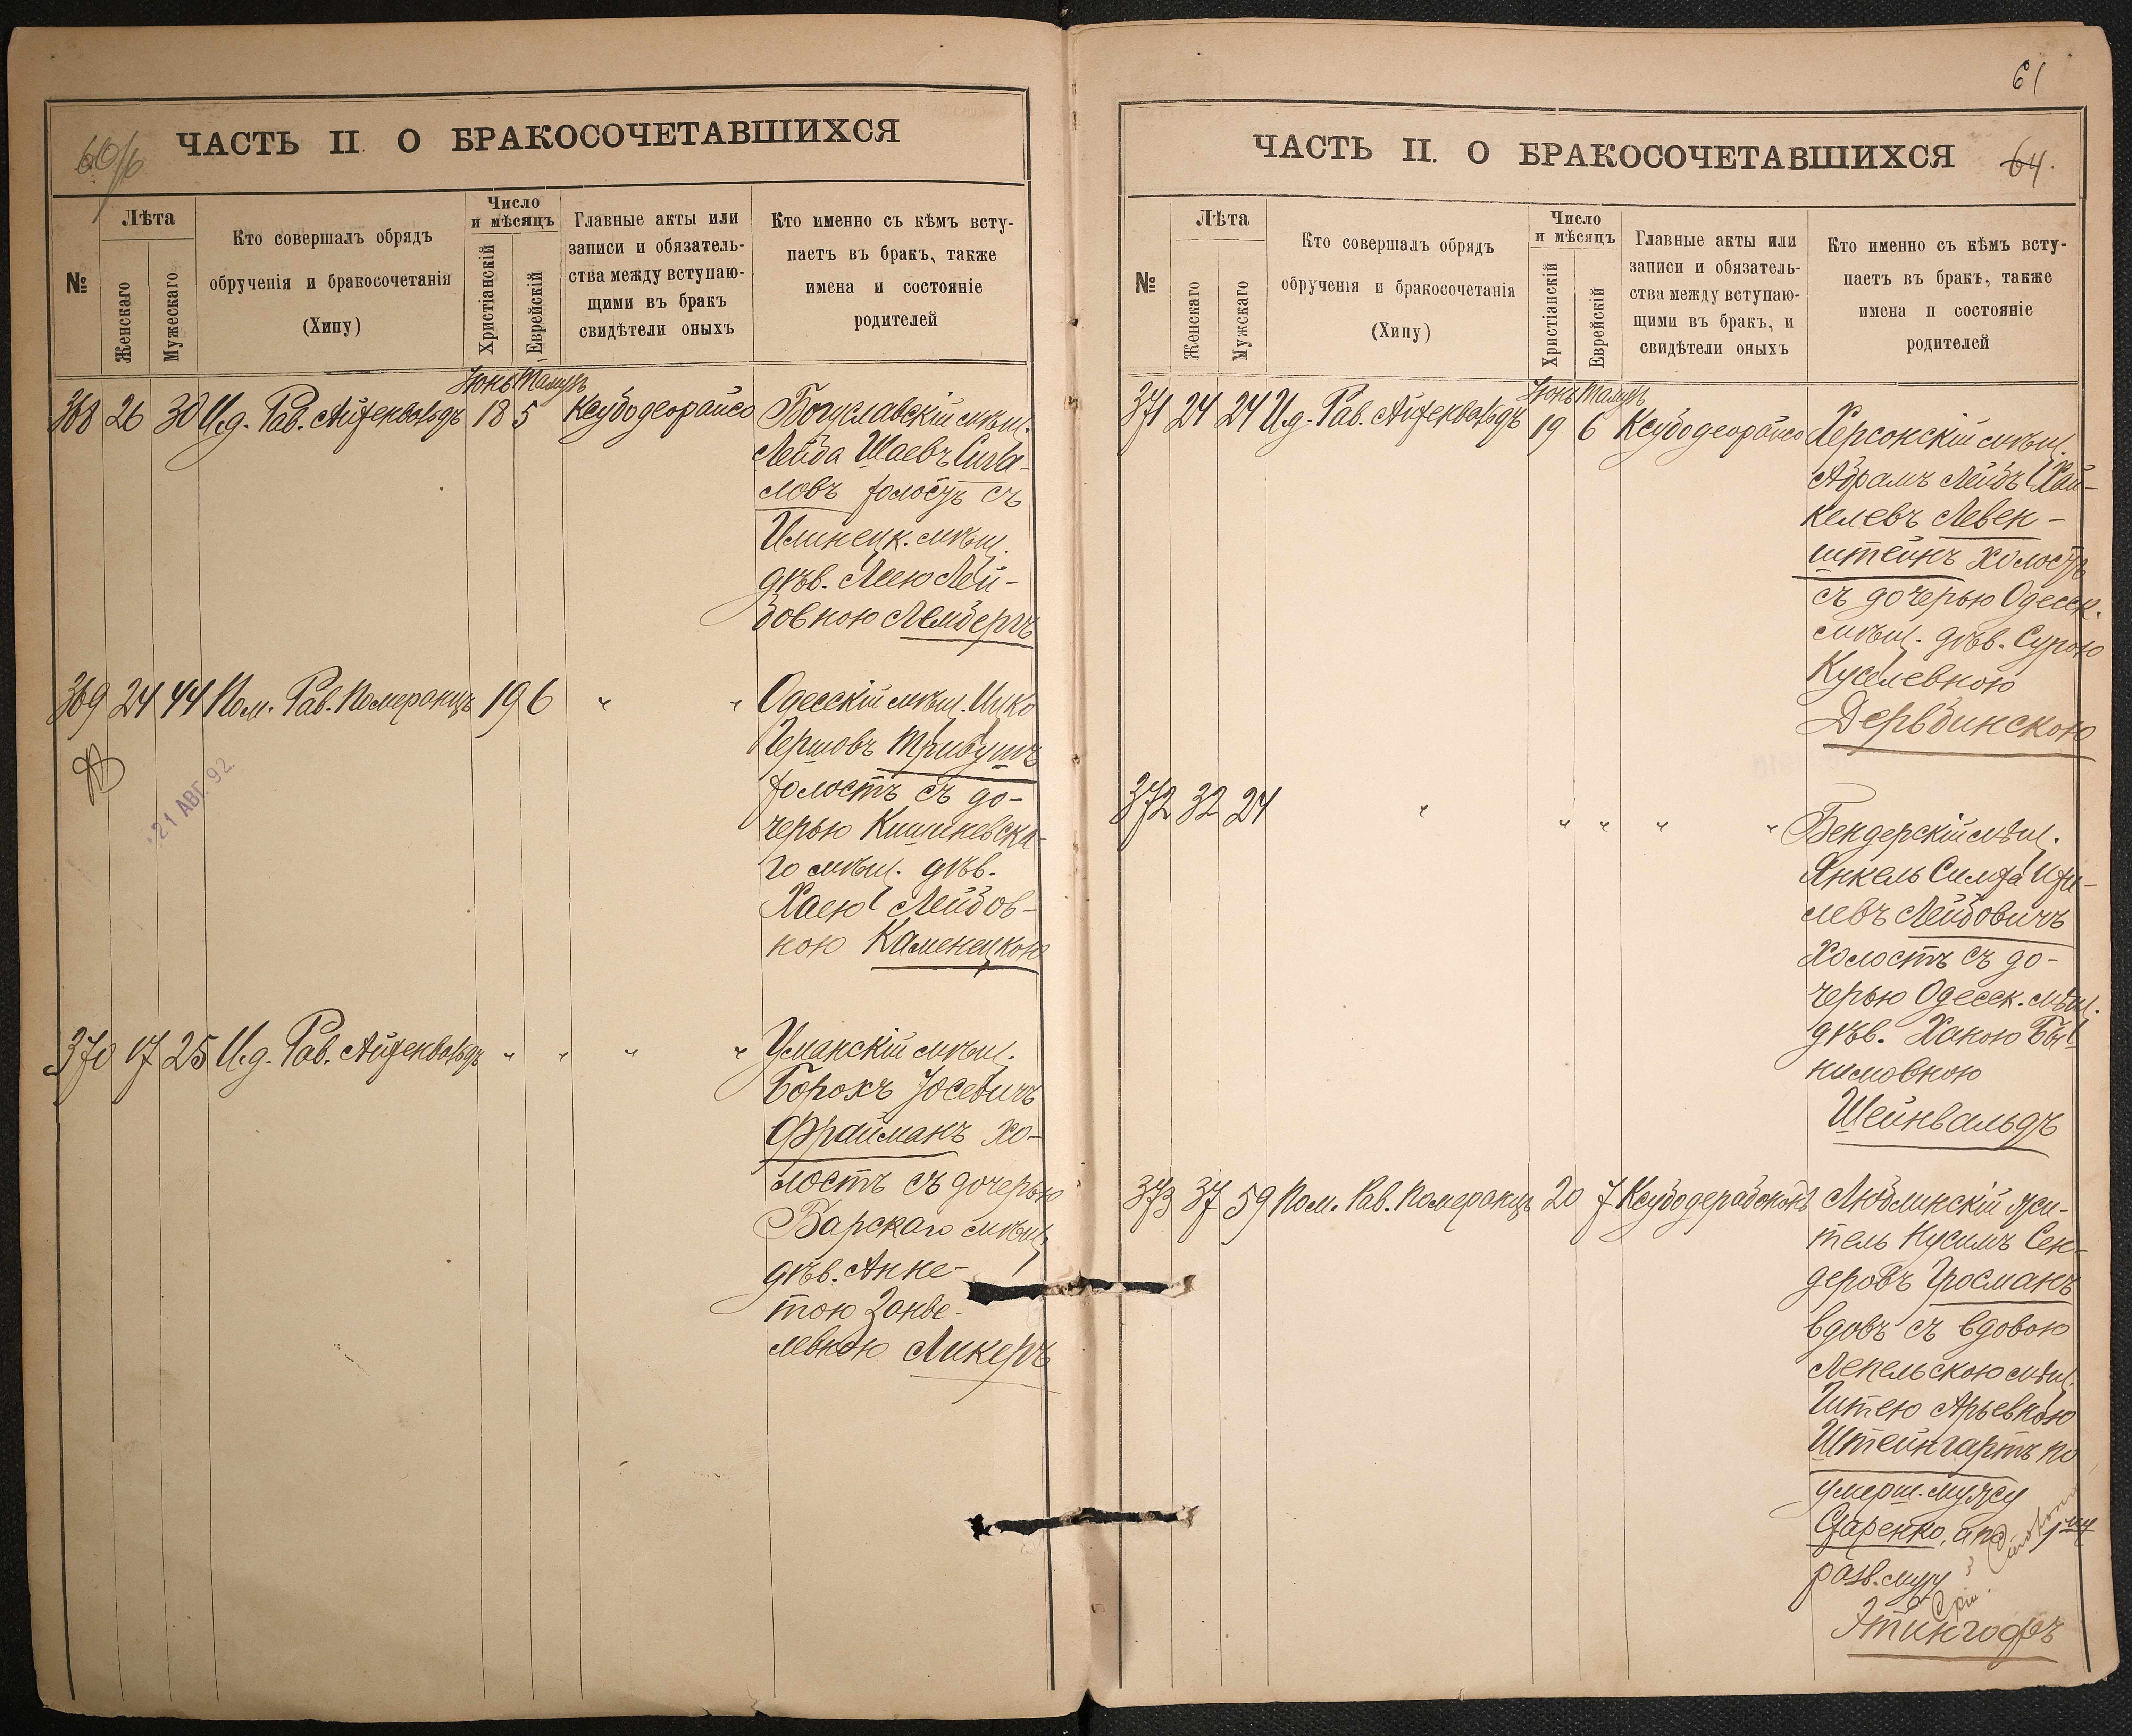 60/б
ЧАСТЬ II О БРАКОСОЧЕТАВШИХСЯ
№
Лѣта
Женскаго
Мужескаго
Кто совершалъ обрядъ
обрученія и бракосочетанія
(Хипу)
Число
и мѣсяцъ
Христіанскій
Еврейскій
Главные акты или
записи и обязатель-
ства между вступаю-
щими въ бракъ
свидѣтели оныхъ
Кто именно съ кѣмъ всту-
паетъ въ бракъ, также
имена и состояніе
родителей
Іюнь Тамузъ
368 26 30 И.д. Рав. Айхенвальдъ 18 5 Ксубодеорайсо Богуславскій мѣщ.
Лейба Шаевъ Сига-
ловъ холостъ съ
Илинецк. мѣщ.
дѣв. Леею Лей-
бовною Лембергъ
369 24 44 Пом. Рав. Померанцъ 19 6 " " Одесскій мѣщ. Ицко
Гершовъ Трибушъ
холостъ съ до-
черью Кишиневска-
го мѣщ. дѣв.
Хаею Лейбов-
ною Каменецкою
21 АВГ. 92.
370 17 25 И.д. Рав. Айхенвальдъ " " " " Уманскій мѣщ.
Борохъ Іосевичъ
Фрайманъ хо-
лостъ съ дочерью
Барскаго мѣщ.
дѣв. Анне-
тою Занве-
левною Ликеръ
61
ЧАСТЬ II. О БРАКОСОЧЕТАВШИХСЯ
64.
№
Лѣта
Женскаго
Мужскаго
Кто совершалъ обрядъ
обрученія и бракосочетанія
(Хипу)
Число
и мѣсяцъ
Христіанскій
Еврейскій
Главные акты или
записи и обязатель-
ства между вступаю-
щими въ бракъ, и
свидѣтели оныхъ
Кто именно съ кѣмъ всту-
паетъ въ бракъ, также
имена и состояніе
родителей
Іюнь Тамузъ
371 24 24 И.д. Рав. Айхенвальдъ 19 6 Ксубодеорайсо Херсонскій мѣщ.
Абрамъ Лейбъ Хай-
келевъ Левен-
штейнъ холостъ
съ дочерью Одесск.
мѣщ. дѣв. Сурою
Куселевною
Дербдинскою
372 32 24 " " " " " Бендерскій мѣщ.
Янкель Симха Ихи-
левъ Лейбовичъ
холостъ съ до-
черью Одесск. мѣщ.
дѣв. Ханою Бы-
нимовною
Шейнвальдъ
373 37 59 Пом. Рав. Померанцъ 20 7 Ксубодерабононъ Люблинскій жи-
тель Нусимъ Сен-
деровъ Гросманъ
вдовъ съ вдовою
Лепельскою мѣщ.
Гитею Арьевною
Штейнгартъ по
умерш. мужу
а по 1му
разв. мужу
Этингофъ